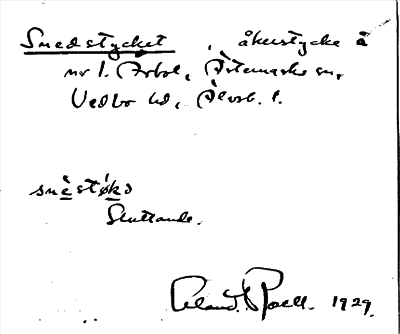 Snedstycket, åkerstycke å
nr 1. Årbol, Ärtemarks sn,
Vedbo hd, Älvsb. l.
snèstýkə
Sluttande.
Roell. 1929.